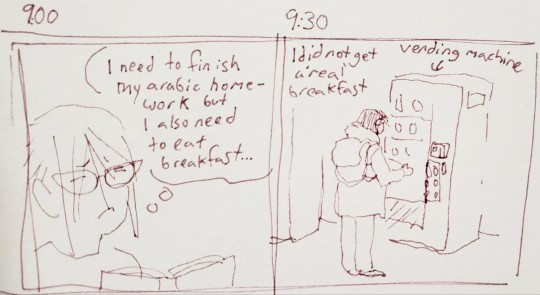 9:00
I need to finish
my arabic home-
work but
I also need
to eat
breakfast...
9:30
I did not get
a 'real'
breakfast
vending machine